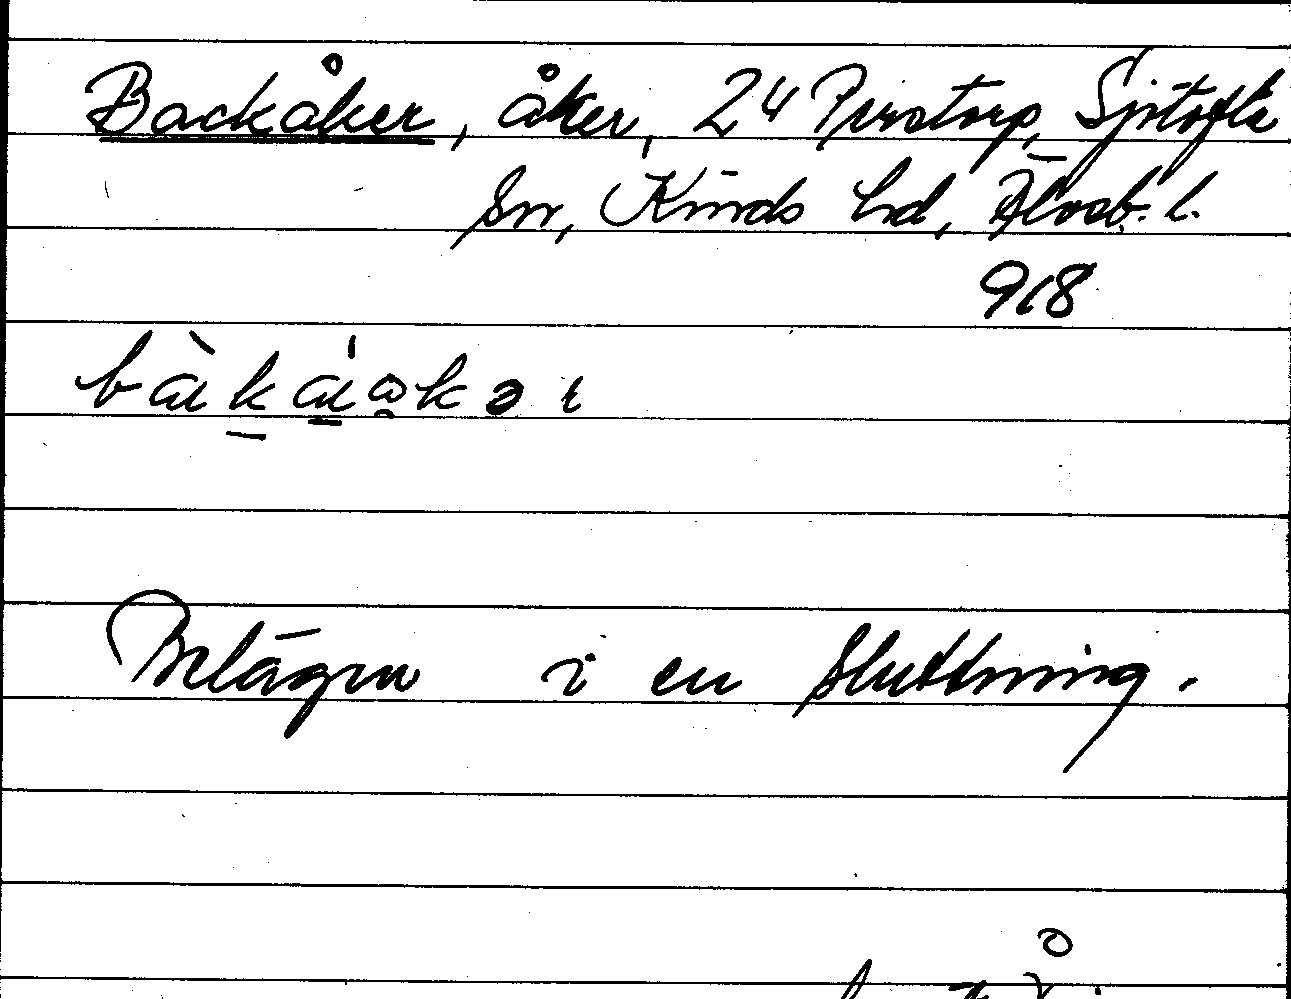 Backåker, åker, 24 Perstorp, Sjötofta
sn, Kinds hd, Älvsb. l.
918
Belägen i en sluttning.